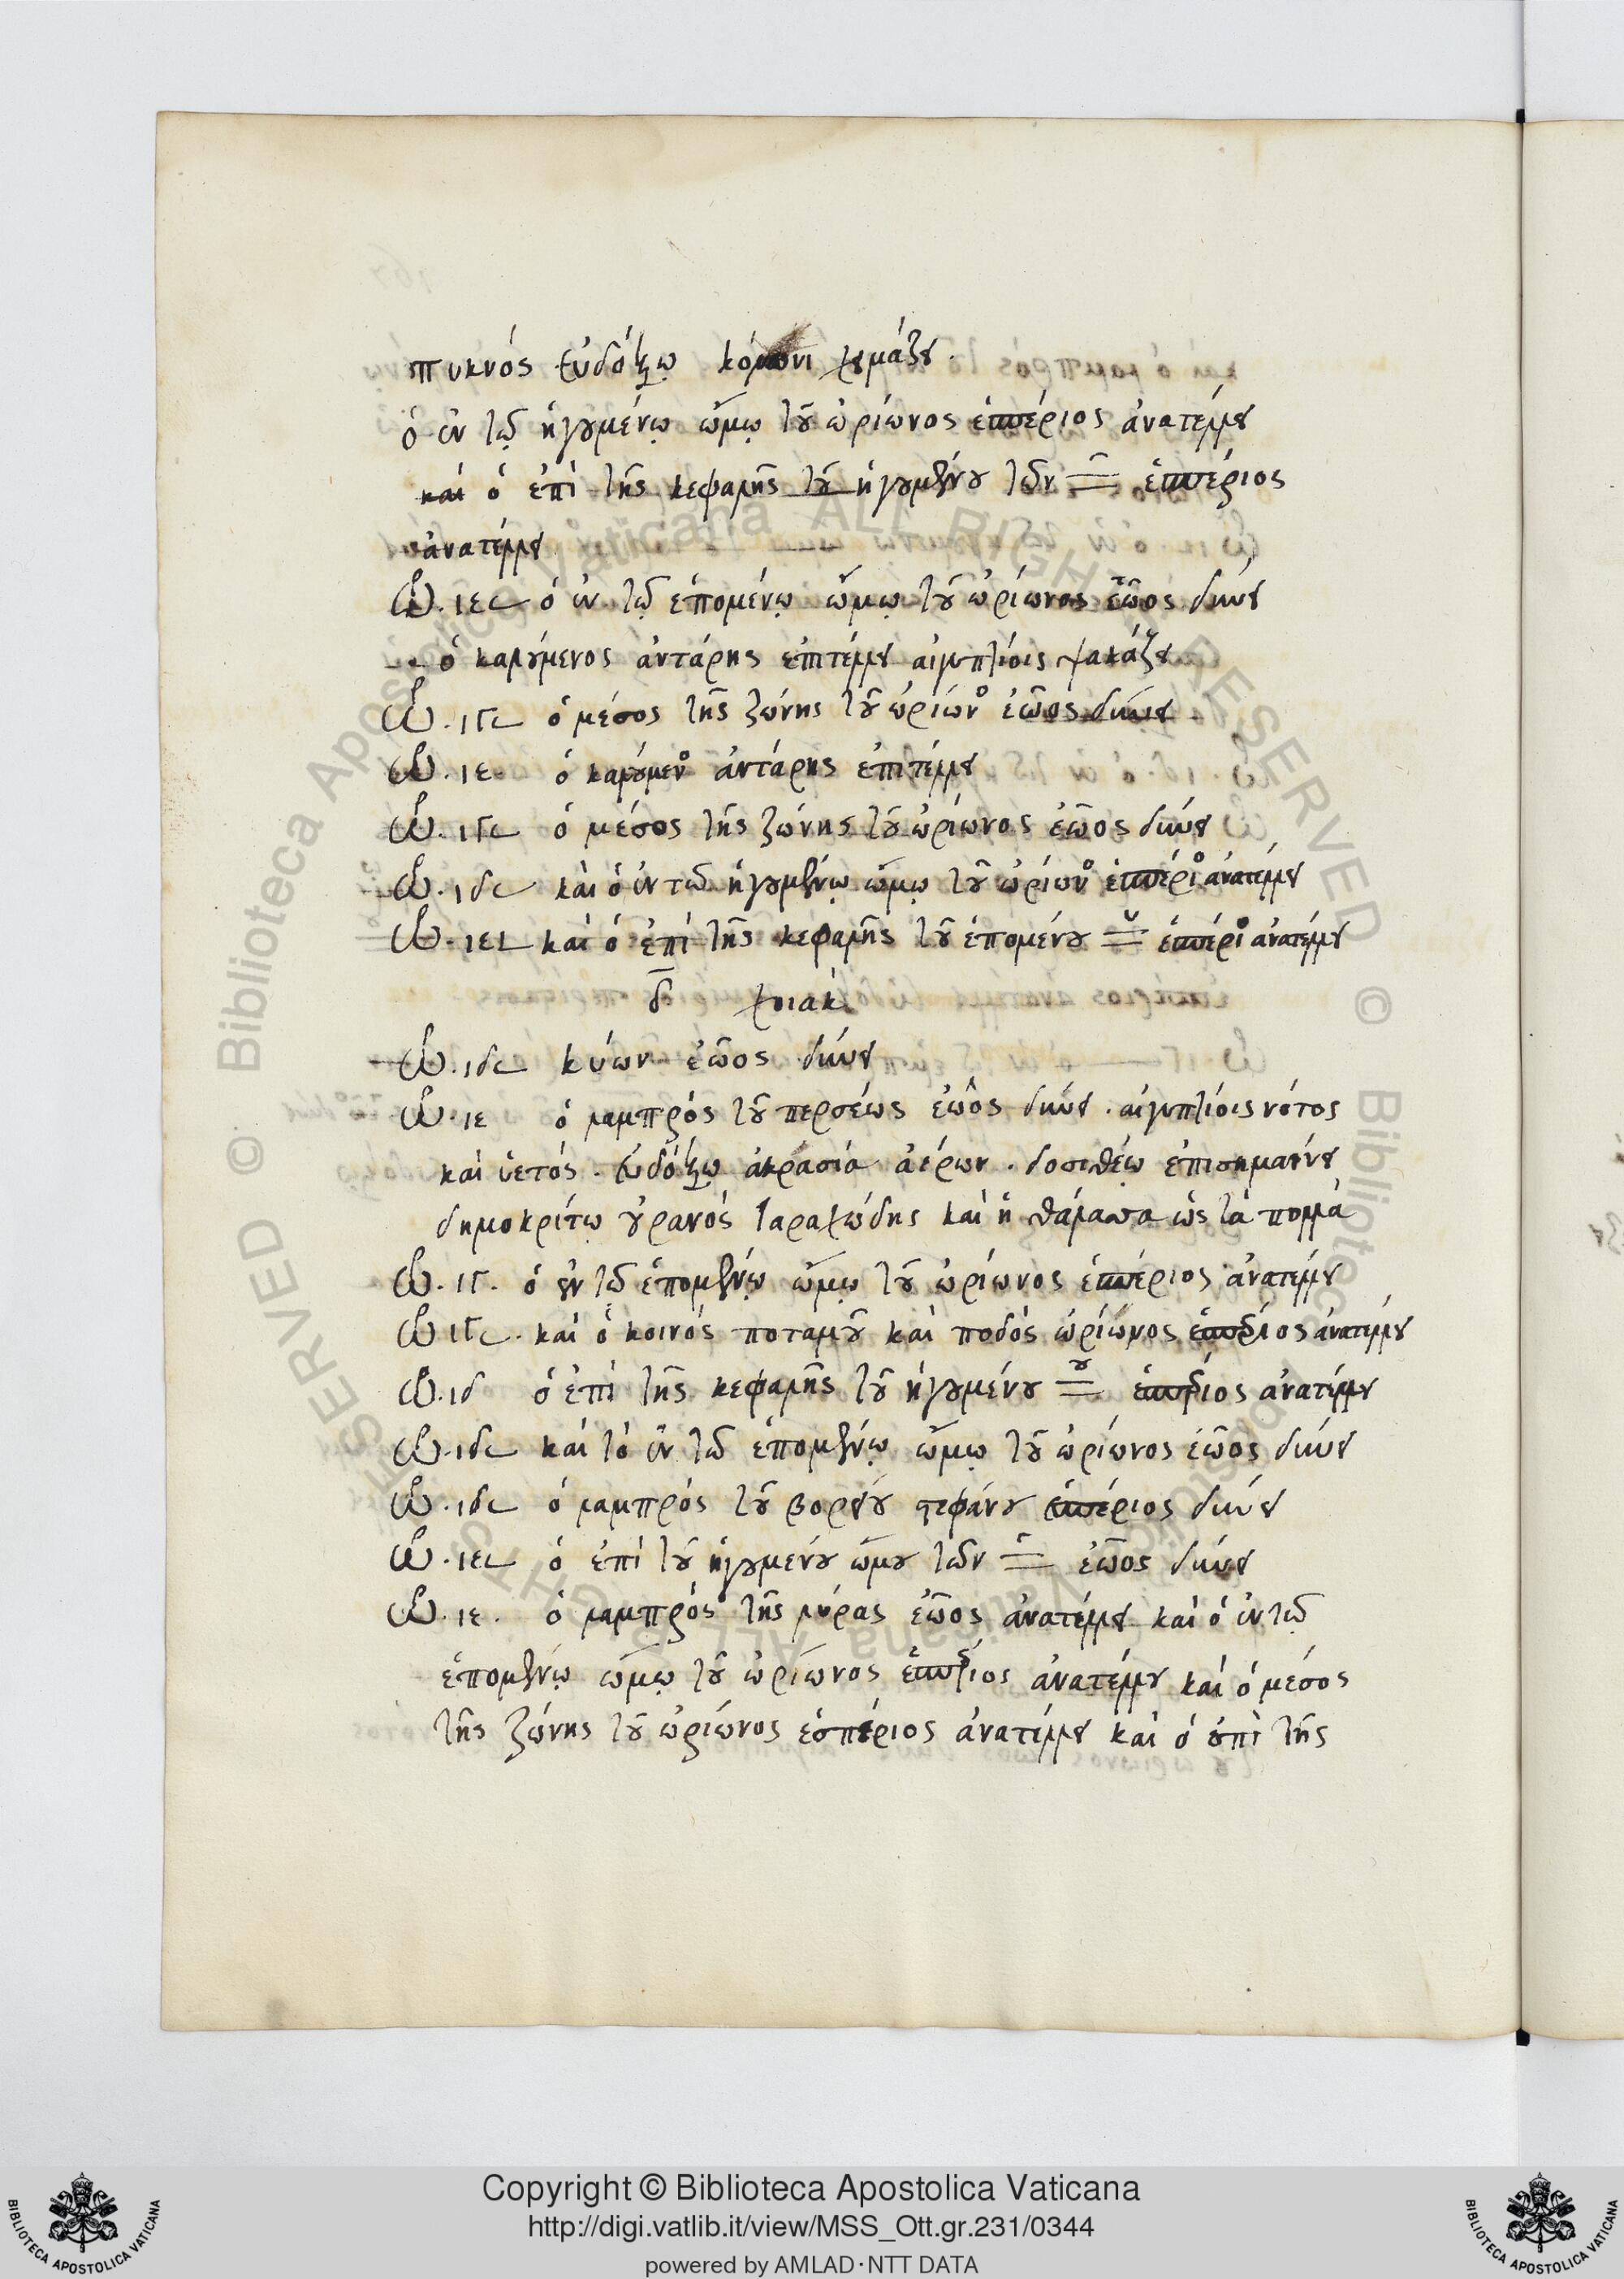 πυκνός εὐδόξῳ κόνωνι χειμάζει.
ὁ ἐν τῷ ἡγουμένῳ ὤμῳ τοῦ ὠρίωνος ἑσπέριος ἀνατέλλει
καὶ ὁ ἐπὶ τῆς κεφαλῆς τοῦ ἡγουμένου τῶν ἑσπέριος
ἀνατέλλει
ὡ. ιε𐅵 ὁ ἐν τῷ ἑπομένῳ ὤμῳ τοῦ ὠρίωνος ἑῶος δύνει
ὁ καλούμενος ἀντάρης ἐπιτέλλει αἰγυπτίοις ψακάζει
ὡ. ιγ𐅵 ὁ μέσος τῆς ζώνης τοῦ ὠρίωνος ἑῶος δύνει
ὡ. ιε ὁ καλούμενος ἀντάρης ἐπιτέλλει
ὡ. ιγ𐅵 ὁ μέσος τῆς ζώνης τοῦ ὠρίωνος ἑῶος δύνει
ὡ. ιδ𐅵 καὶ ὁ ἐν τῶ ἡγουμένῳ ὤμῳ τοῦ ὠρίωνος ἑσπέριος ἀνατέλλει
ὡ. ιε𐅵 καὶ ὁ ἐπὶ τῆς κεφαλῆς τοῦ ἑπομένου ἑσπέριος ἀνατέλλει
δ̅ χοιακ
ὡ. ιδ𐅵 κύων ἑῶος δύνει
ὡ. ιε ὁ λαμπρός τοῦ περσέως ἑῶος δύνει. αἰγυπτίοις νότος
καὶ ὑετός. εὐδόξῳ ἀκρασία ἀέρων. δοσιθέῳ ἐπισημαίνει
δημοκρίτῳ οὐρανός ταραχώδης καὶ ἡ θάλασσα ὡς τὰ πολλά
ὡ. ιγ. ὁ ἐν τῶ ἑπομένῳ ὤμῳ τοῦ ὠρίωνος ἑσπέριος ἀνατέλλει
ὡ ιγ𐅵. καὶ ὁ κοινός ποταμοῦ καὶ ποδός ὠρίωνος ἑσπέριος ἀνατέλλει
ὡ. ιδ ὁ ἐπὶ τῆς κεφαλῆς τοῦ ἡγουμένου ἑσπέριος ἀνατέλλει
ὡ. ιδ𐅵 καὶ τὸ ἐν τῶ ἑπομένῳ ὤμῳ τοῦ ὠρίωνος ἑῶος δύνει
ὡ. ιδ𐅵 ὁ λαμπρός τοῦ βορείου στεφάνου ἑσπέριος δύνει
ὡ. ιε𐅵 ὁ ἐπὶ τοῦ ἡγουμένου ὤμου τῶν ἑῶος δύνει
ὡ. ιε. ὁ λαμπρός τῆς λύρας ἑῶος ἀνατέλλει καὶ ὁ ἐν τῷ
ἑπομένῳ ὤμῳ τοῦ ὠρίωνος ἑσπέριος ἀνατέλλει καὶ ὁ μέσος
τῆς ζώνης τοῦ ὠρίωνος ἑσπέριος ἀνατέλλει καὶ ὁ ἐπὶ τῆς
© Biblioteca Apostolica Vaticana ALL RIGHTS RESERVED
© Biblioteca Apostolica Vaticana ALL RIGHTS RESERVED
BIBLIOTECA APOSTOLICA VATICANA
Copyright © Biblioteca Apostolica Vaticana
http://digi.vatlib.it/view/MSS_Ott.gr.231/0344
powered by AMLAD·NTT DATA
BIBLIOTECA APOSTOLICA VATICANA